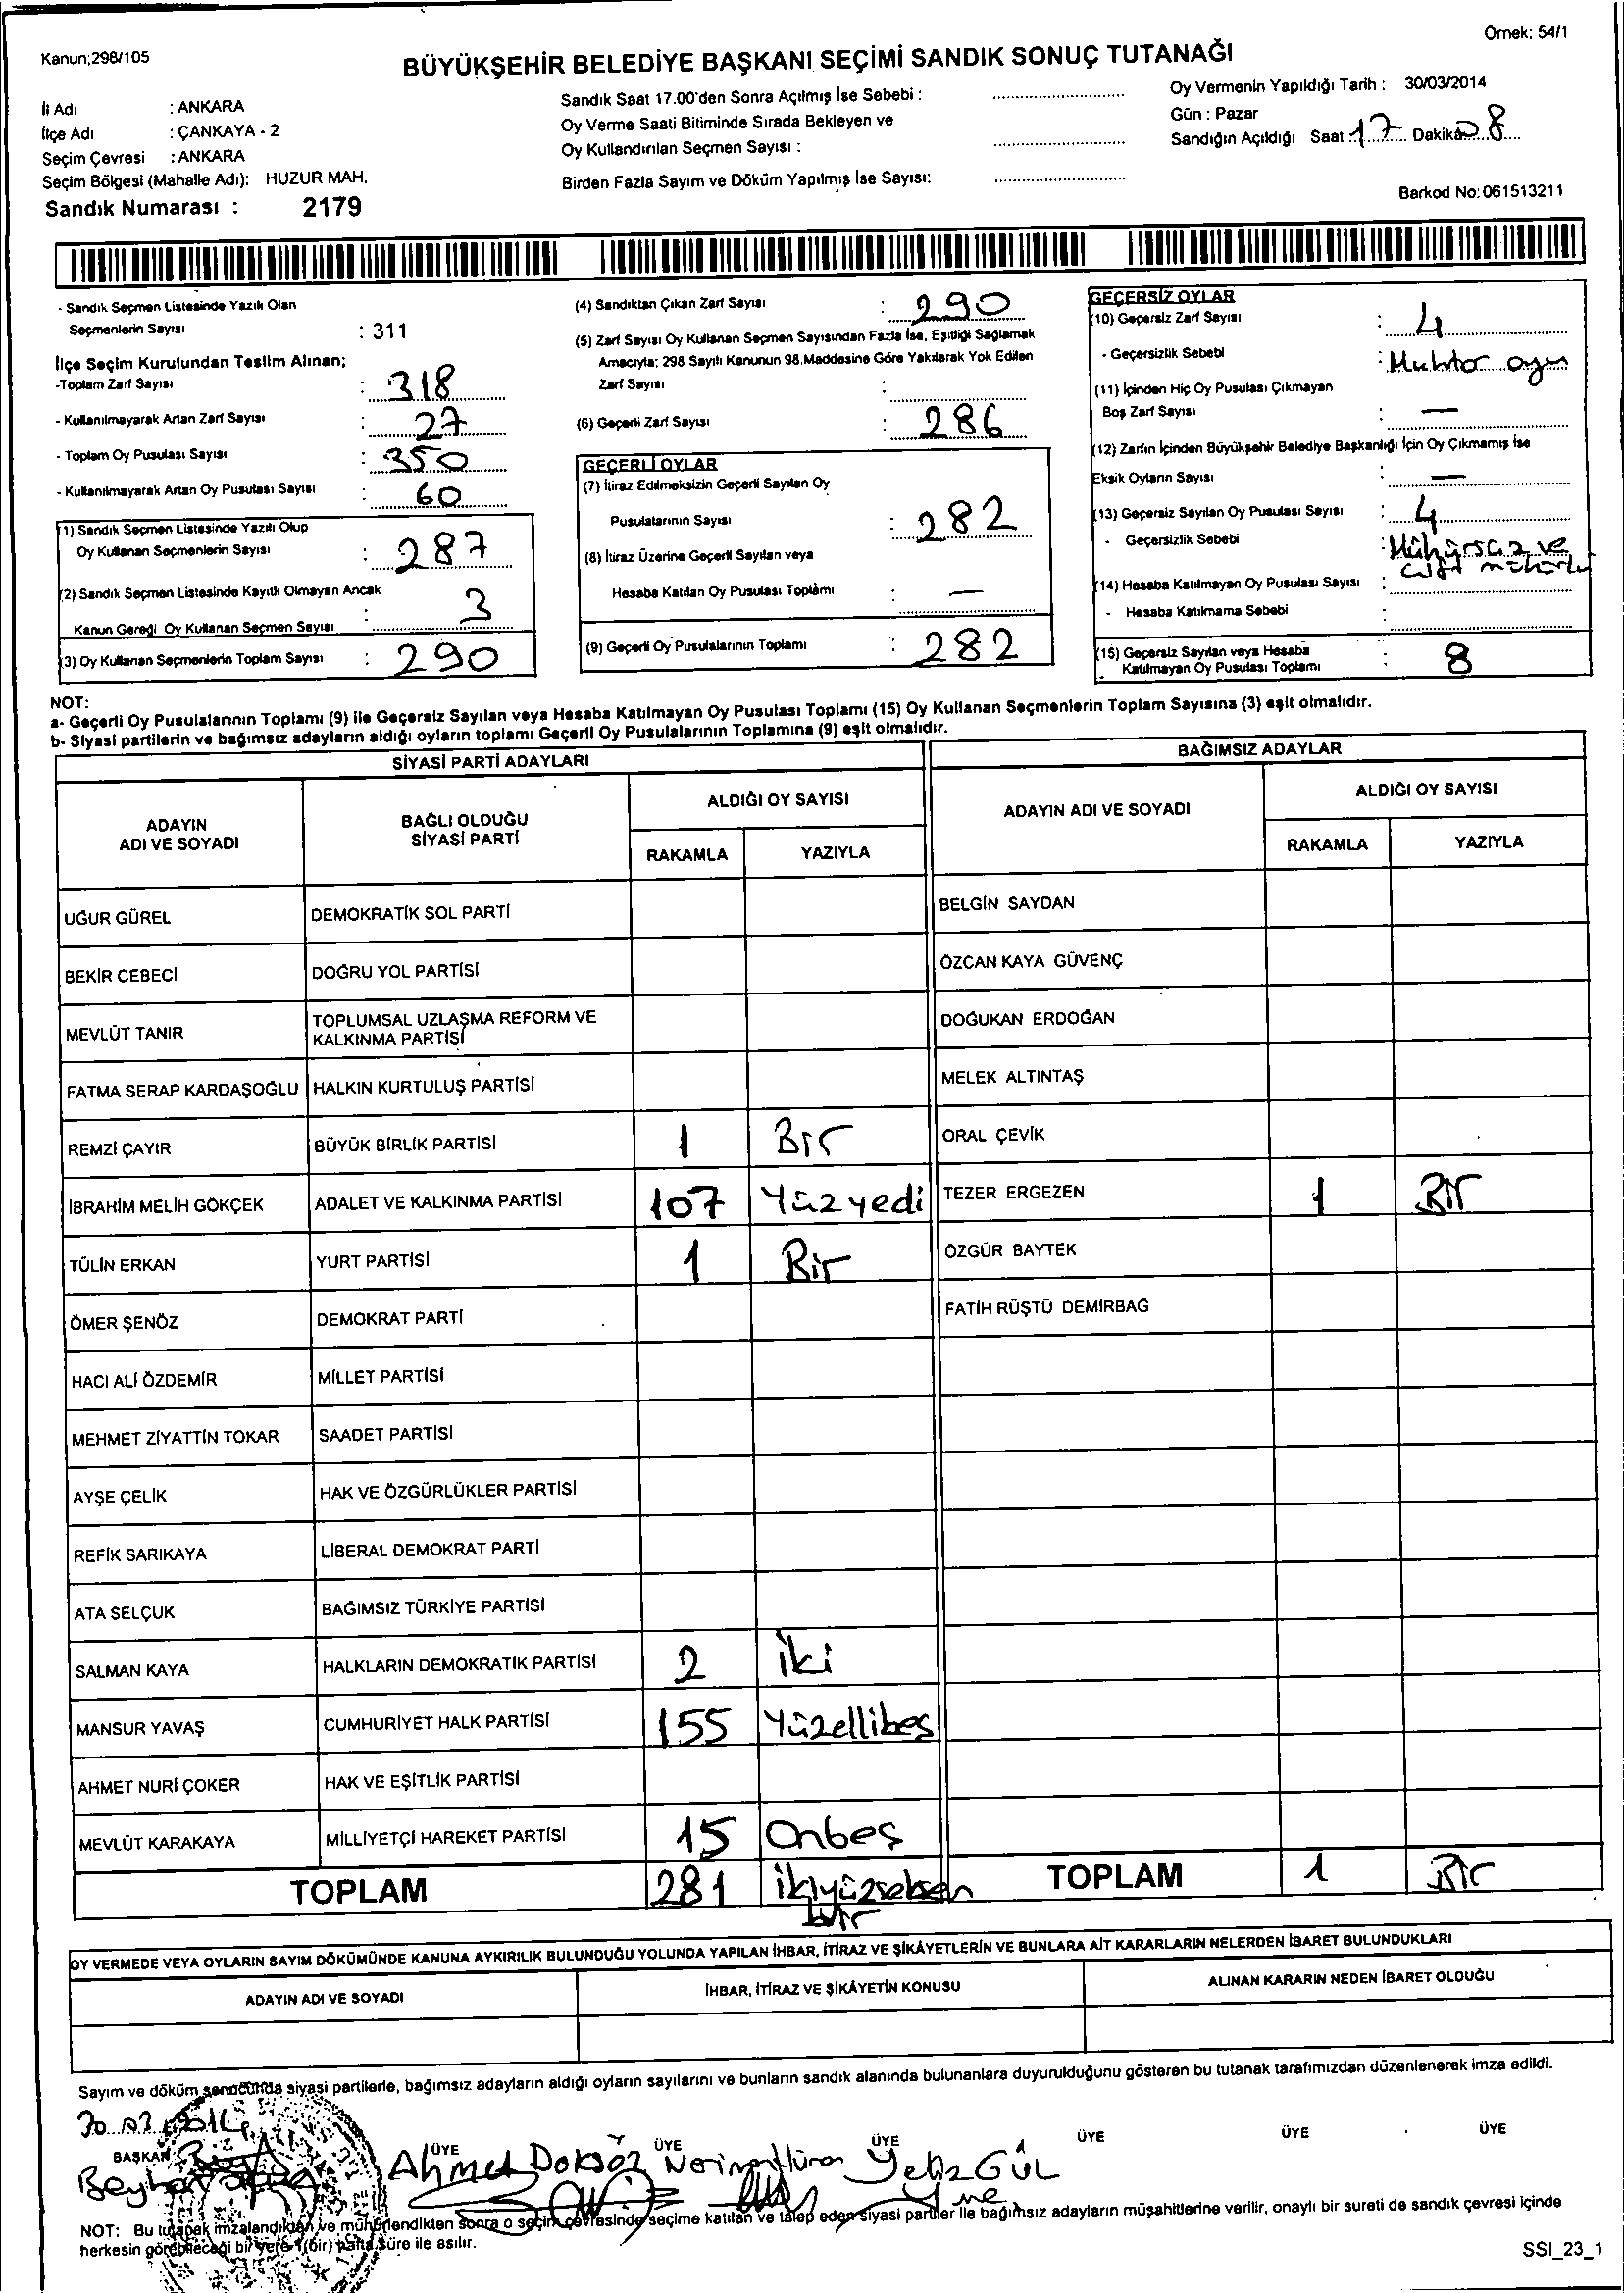 Kanun;298/105
Örnek: 54/1
BÜYÜKŞEHİR BELEDİYE BAŞKANI SEÇİMİ SANDIK SONUÇ TUTANAĞI
İli Adı : ANKARA
İlçe Adı : ÇANKAYA - 2
Seçim Çevresi : ANKARA
Seçim Bölgesi (Mahalle Adı): HUZUR MAH.
Sandık Numarası : 2179
Sandık Saat 17.00'den Sonra Açılmış İse Sebebi :
Oy Verme Saati Bitiminde Sırada Bekleyen ve
Oy Kullandırılan Seçmen Sayısı :
Birden Fazla Sayım ve Döküm Yapılmış İse Sayısı:
Oy Vermenin Yapıldığı Tarih : 30/03/2014
Gün : Pazar
Sandığın Açıldığı Saat 17 Dakika 08
Barkod No: 061513211
- Sandık Seçmen Listesinde Yazılı Olan
Seçmenlerin Sayısı : 311
İlçe Seçim Kurulundan Teslim Alınan;
-Toplam Zarf Sayısı : 318
- Kullanılmayarak Artan Zarf Sayısı : 27
- Toplam Oy Pusulası Sayısı : 350
- Kullanılmayarak Artan Oy Pusulası Sayısı : 60
(1) Sandık Seçmen Listesinde Yazılı Olup
Oy Kullanan Seçmenlerin Sayısı : 287
(2) Sandık Seçmen Listesinde Kayıtlı Olmayan Ancak
Kanun Gereği Oy Kullanan Seçmen Sayısı : 3
(3) Oy Kullanan Seçmenlerin Toplam Sayısı : 290
(4) Sandıktan Çıkan Zarf Sayısı : 290
(5) Zarf Sayısı Oy Kullanan Seçmen Sayısından Fazla İse, Eşitliği Sağlamak
Amacıyla; 298 Sayılı Kanunun 98.Maddesine Göre Yakılarak Yok Edilen
Zarf Sayısı :
(6) Geçerli Zarf Sayısı : 286
GEÇERLİ OYLAR
(7) İtiraz Edilmeksizin Geçerli Sayılan Oy
Pusulalarının Sayısı : 282
(8) İtiraz Üzerine Geçerli Sayılan veya
Hesaba Katılan Oy Pusulası Toplamı : —
(9) Geçerli Oy Pusulalarının Toplamı : 282
GEÇERSİZ OYLAR
(10) Geçersiz Zarf Sayısı : 4
- Geçersizlik Sebebi : Muhtar oyu
(11) İçinden Hiç Oy Pusulası Çıkmayan
Boş Zarf Sayısı : —
(12) Zarfın İçinden Büyükşehir Belediye Başkanlığı İçin Oy Çıkmamış İse
Eksik Oyların Sayısı : —
(13) Geçersiz Sayılan Oy Pusulası Sayısı : 4
- Geçersizlik Sebebi : Mühürsüz ve
çift mühürlü
(14) Hesaba Katılmayan Oy Pusulası Sayısı :
- Hesaba Katılmama Sebebi :
(15) Geçersiz Sayılan veya Hesaba
Katılmayan Oy Pusulası Toplamı : 8
NOT:
a- Geçerli Oy Pusulalarının Toplamı (9) ile Geçersiz Sayılan veya Hesaba Katılmayan Oy Pusulası Toplamı (15) Oy Kullanan Seçmenlerin Toplam Sayısına (3) eşit olmalıdır.
b- Siyasi partilerin ve bağımsız adayların aldığı oyların toplamı Geçerli Oy Pusulalarının Toplamına (9) eşit olmalıdır.
SİYASİ PARTİ ADAYLARI
BAĞIMSIZ ADAYLAR
ADAYIN ADI VE SOYADI
BAĞLI OLDUĞU SİYASİ PARTİ
ALDIĞI OY SAYISI
RAKAMLA YAZIYLA
ADAYIN ADI VE SOYADI
ALDIĞI OY SAYISI
RAKAMLA YAZIYLA
UĞUR GÜREL DEMOKRATİK SOL PARTİ BELGİN SAYDAN
BEKİR CEBECİ DOĞRU YOL PARTİSİ ÖZCAN KAYA GÜVENÇ
MEVLÜT TANIR TOPLUMSAL UZLAŞMA REFORM VE KALKINMA PARTİSİ DOĞUKAN ERDOĞAN
FATMA SERAP KARDAŞOĞLU HALKIN KURTULUŞ PARTİSİ MELEK ALTINTAŞ
REMZİ ÇAYIR BÜYÜK BİRLİK PARTİSİ 1 Bir ORAL ÇEVİK
İBRAHİM MELİH GÖKÇEK ADALET VE KALKINMA PARTİSİ 107 Yüzyedi TEZER ERGEZEN 1 Bir
TÜLİN ERKAN YURT PARTİSİ 1 Bir ÖZGÜR BAYTEK
ÖMER ŞENÖZ DEMOKRAT PARTİ FATİH RÜŞTÜ DEMİRBAĞ
HACI ALİ ÖZDEMİR MİLLET PARTİSİ
MEHMET ZİYATTİN TOKAR SAADET PARTİSİ
AYŞE ÇELİK HAK VE ÖZGÜRLÜKLER PARTİSİ
REFİK SARIKAYA LİBERAL DEMOKRAT PARTİ
ATA SELÇUK BAĞIMSIZ TÜRKİYE PARTİSİ
SALMAN KAYA HALKLARIN DEMOKRATİK PARTİSİ 2 İki
MANSUR YAVAŞ CUMHURİYET HALK PARTİSİ 155 Yüzellibeş
AHMET NURİ ÇOKER HAK VE EŞİTLİK PARTİSİ
MEVLÜT KARAKAYA MİLLİYETÇİ HAREKET PARTİSİ 15 Onbeş
TOPLAM 281 ikiyüzseksen bir TOPLAM 1 Bir
OY VERMEDE VEYA OYLARIN SAYIM DÖKÜMÜNDE KANUNA AYKIRILIK BULUNDUĞU YOLUNDA YAPILAN İHBAR, İTİRAZ VE ŞİKÂYETLERİN VE BUNLARA AİT KARARLARIN NELERDEN İBARET BULUNDUKLARI
ADAYIN ADI VE SOYADI İHBAR, İTİRAZ VE ŞİKÂYETİN KONUSU ALINAN KARARIN NEDEN İBARET OLDUĞU
Sayım ve döküm sonucunda siyasi partilerle, bağımsız adayların aldığı oyların sayılarını ve bunların sandık alanında bulunanlara duyurulduğunu gösteren bu tutanak tarafımızdan düzenlenerek imza edildi.
30.03.2014
BAŞKAN ÜYE ÜYE ÜYE ÜYE ÜYE ÜYE
Ahmet Doksöz Yeliz GÜL
NOT: Bu tutanak imzalandıktan ve mühürlendikten sonra o seçim çevresinde seçime katılan ve talep eden siyasi partiler ile bağımsız adayların müşahitlerine verilir, onaylı bir sureti de sandık çevresi içinde
herkesin görebileceği bir yere 1(bir) hafta süre ile asılır.
SSI_23_1